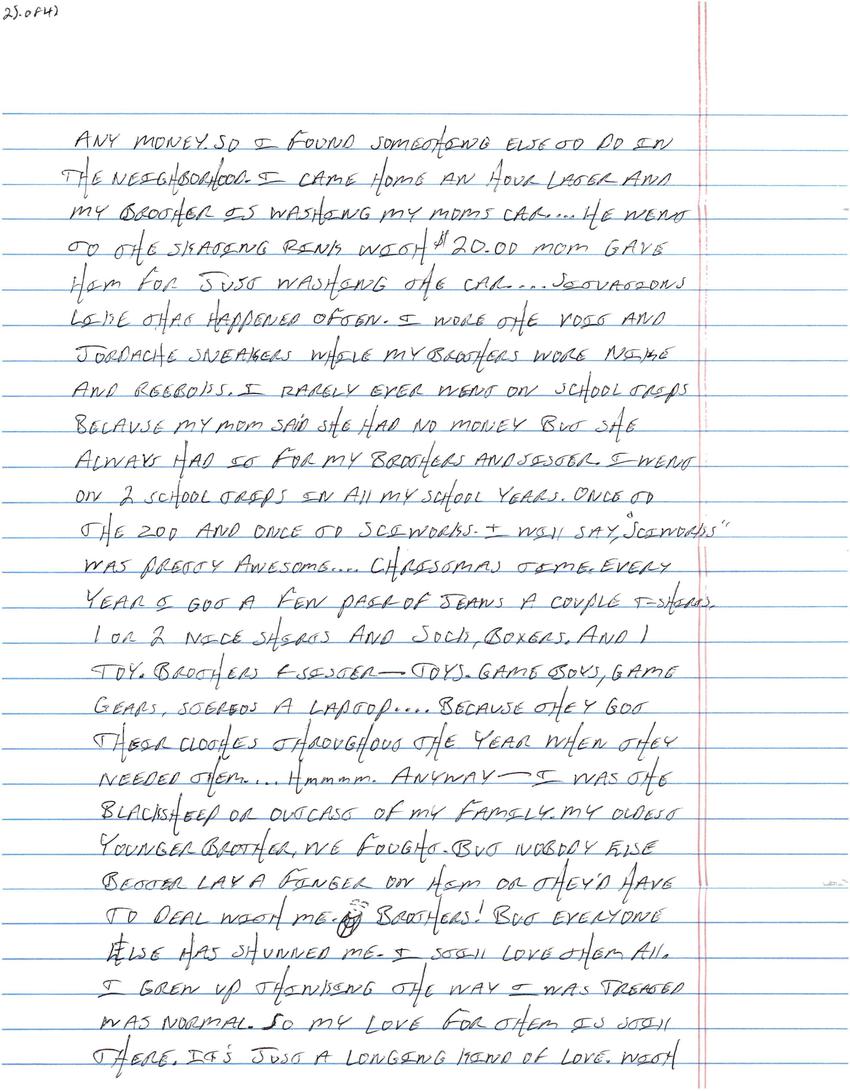 2). of 4)
ANY MONEY. SO I FOUND SOMETHING ELSE TO DO IN
THE NEIGHBORHOOD. I CAME HOME AN HOUR LATER AND
MY BROTHER IS WASHING MY MOMS CAR.... HE WENT
TO THE SKATING RINK WITH $20.00 MOM GAVE
HIM FOR JUST WASHING THE CAR.... SITUATIONS
LIKE THAT HAPPENED OFTEN. I WORE THE VOIT AND
JORDACHE SNEAKERS WHILE MY BROTHERS WORE NIKE
AND REEBOKS. I RARELY EVER WENT ON SCHOOL TRIPS
BECAUSE MY MOM SAID SHE HAD NO MONEY BUT SHE
ALWAYS HAD IT FOR MY BROTHERS AND SISTER. I WENT
ON 2 SCHOOL TRIPS IN All MY SCHOOL YEARS. ONCE TO
THE ZOO AND ONCE TO SCIWORKS. I WIll SAY, "SCIWORKS"
WAS PRETTY AWESOME.... CHRISTMAS TIME. EVERY
YEAR I GOT A FEW PAIR OF JEANS A COUPLE T-SHIRTS.
1 OR 2 NICE SHIRTS AND SOCK, BOXERS. AND 1
TOY. BROTHERS & SISTER— TOYS. GAME BOYS, GAME
GEARS, STEREOS A LAPTOP.... BECAUSE THEY GOT
THEIR CLOTHES THROUGHOUT THE YEAR WHEN THEY
NEEDED THEM.... Hmmmm. ANYWAY— I WAS THE
BLACKSHEEP OR OUTCAST OF MY FAMILY. MY OLDEST
YOUNGER BROTHER, WE FOUGHT. BUT NOBODY ElSE
BETTER LAY A FINGER ON HIM OR THEY'D HAVE
TO DEAL WITH ME. BROTHERS! BUT EVERYONE
ELSE HAS SHUNNED ME. I STIll LOVE THEM All.
I GREW UP THINKING THE WAY I WAS TREATED
WAS NORMAL. SO MY LOVE FOR THEM IS STIll
THERE. IT'S JUST A LONGING KIND OF LOVE. WITH